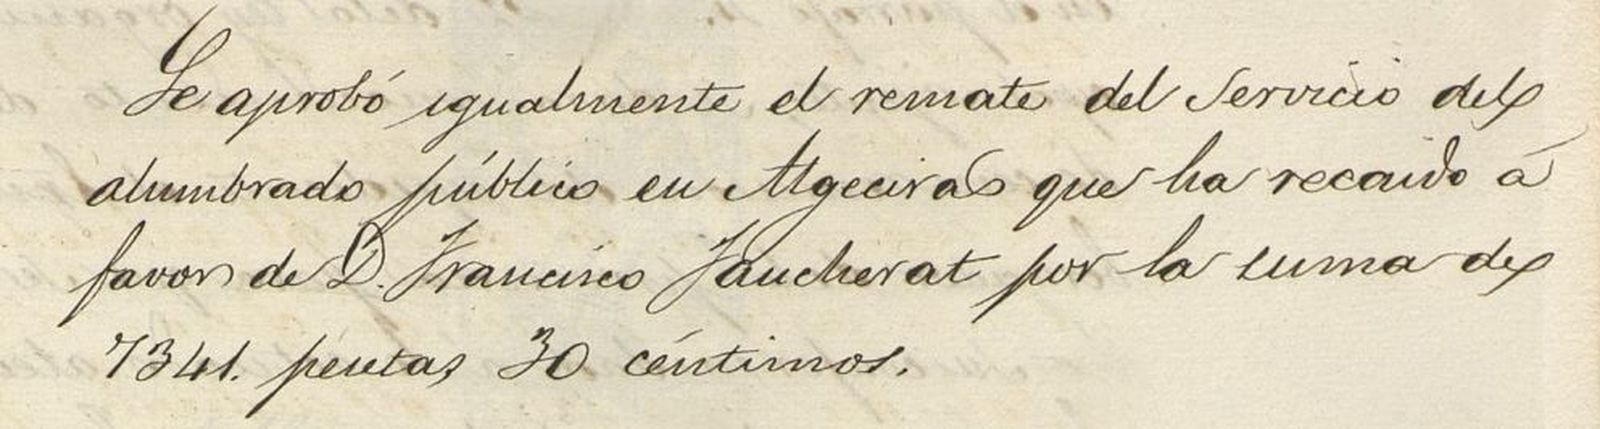 Se aprobó igualmente el remate del Servicio del
alumbrado público en Algeciras que ha recaido á
favor de D. Francisco Faucherat por la suma de
7341. pesetas 30 céntimos.